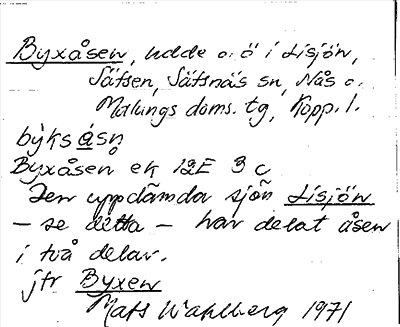 Byxåsen, udde o. ö i Lisjön,
Sätsen, Säfsnäs sn, Nås o.
Malungs doms. tg, Kopp. l.
by̌ks åsn̥
Byxåsen ek 12E 3 c
Den uppdämda sjön Lisjön
– se detta – har delat åsen
i två delar.
jfr Byxen
Mats Wahlberg 1971